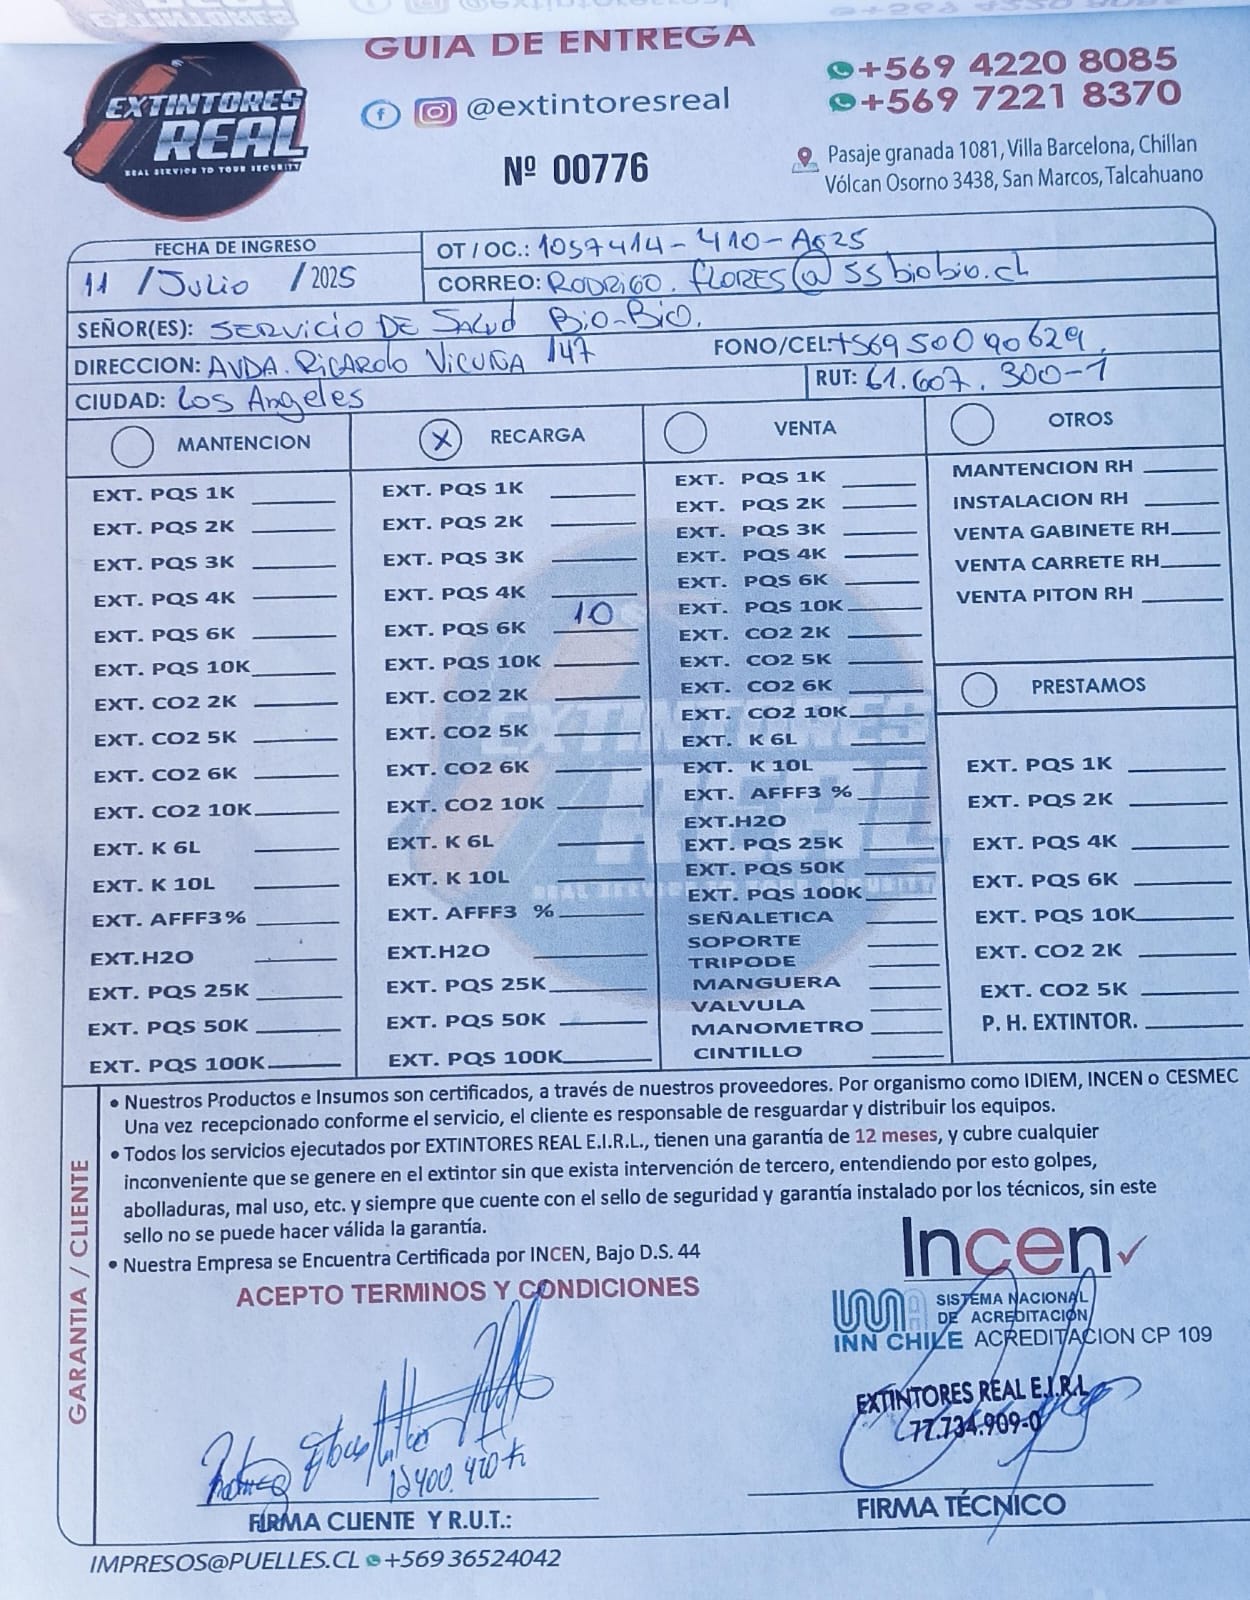 GUIA DE ENTREGA
EXTINTORES
REAL
REAL SERVICE TO YOUR SECURITY
@extintoresreal
Nº 00776
+569 4220 8085
+569 7221 8370
Pasaje granada 1081, Villa Barcelona, Chillan
Vólcan Osorno 3438, San Marcos, Talcahuano
FECHA DE INGRESO
11 / Julio / 2025
OT / OC.: 1057414-410-AG25
CORREO: RODRIGO.FLORES@ssbiobio.cl
SEÑOR(ES): SERVICIO DE Salud Bio-Bio.
DIRECCION: AVDA. RICARDO VICUÑA 147
FONO/CEL: +569 50090629.
CIUDAD: Los Angeles
RUT: 61.607.300-1
MANTENCION
EXT. PQS 1K
EXT. PQS 2K
EXT. PQS 3K
EXT. PQS 4K
EXT. PQS 6K
EXT. PQS 10K
EXT. CO2 2K
EXT. CO2 5K
EXT. CO2 6K
EXT. CO2 10K
EXT. K 6L
EXT. K 10L
EXT. AFFF3%
EXT.H2O
EXT. PQS 25K
EXT. PQS 50K
EXT. PQS 100K
X RECARGA
EXT. PQS 1K
EXT. PQS 2K
EXT. PQS 3K
EXT. PQS 4K
EXT. PQS 6K 10
EXT. PQS 10K
EXT. CO2 2K
EXT. CO2 5K
EXT. CO2 6K
EXT. CO2 10K
EXT. K 6L
EXT. K 10L
EXT. AFFF3 %
EXT.H2O
EXT. PQS 25K
EXT. PQS 50K
EXT. PQS 100K
VENTA
EXT. PQS 1K
EXT. PQS 2K
EXT. PQS 3K
EXT. PQS 4K
EXT. PQS 6K
EXT. PQS 10K
EXT. CO2 2K
EXT. CO2 5K
EXT. CO2 6K
EXT. CO2 10K
EXT. K 6L
EXT. K 10L
EXT. AFFF3 %
EXT.H2O
EXT. PQS 25K
EXT. PQS 50K
EXT. PQS 100K
SEÑALETICA
SOPORTE
TRIPODE
MANGUERA
VALVULA
MANOMETRO
CINTILLO
OTROS
MANTENCION RH
INSTALACION RH
VENTA GABINETE RH
VENTA CARRETE RH
VENTA PITON RH
PRESTAMOS
EXT. PQS 1K
EXT. PQS 2K
EXT. PQS 4K
EXT. PQS 6K
EXT. PQS 10K
EXT. CO2 2K
EXT. CO2 5K
P. H. EXTINTOR.
GARANTIA / CLIENTE
• Nuestros Productos e Insumos son certificados, a través de nuestros proveedores. Por organismo como IDIEM, INCEN o CESMEC
Una vez recepcionado conforme el servicio, el cliente es responsable de resguardar y distribuir los equipos.
• Todos los servicios ejecutados por EXTINTORES REAL E.I.R.L., tienen una garantía de 12 meses, y cubre cualquier
inconveniente que se genere en el extintor sin que exista intervención de tercero, entendiendo por esto golpes,
abolladuras, mal uso, etc. y siempre que cuente con el sello de seguridad y garantía instalado por los técnicos, sin este
sello no se puede hacer válida la garantía.
• Nuestra Empresa se Encuentra Certificada por INCEN, Bajo D.S. 44
ACEPTO TERMINOS Y CONDICIONES
Incen
SISTEMA NACIONAL
DE ACREDITACIÓN
INN CHILE ACREDITACION CP 109
EXTINTORES REAL E.I.R.L
77.734.909-0
FIRMA CLIENTE Y R.U.T.:
FIRMA TÉCNICO
IMPRESOS@PUELLES.CL +569 36524042